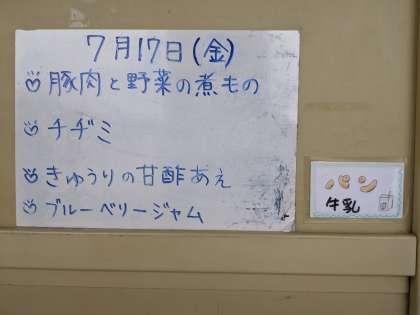 7月17日(金)
豚肉と野菜の煮もの
チヂミ
きゅうりの甘酢あえ
ブルーベリージャム
パン
牛乳